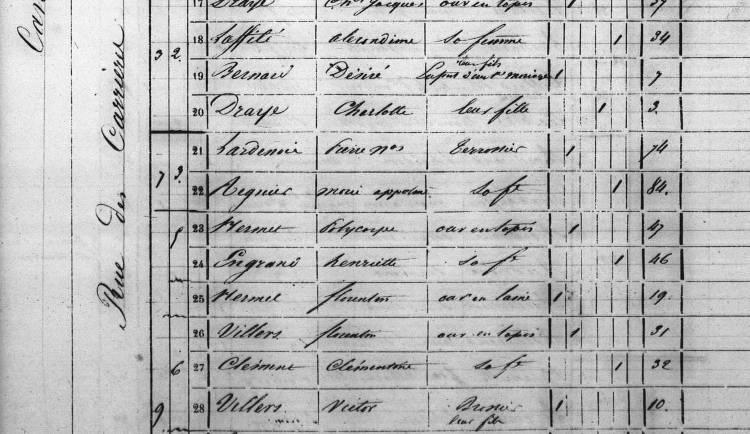 17 Draye Ch^les Jacques ouv en tapis 1 37
18 Laffilé alexandrine sa femme 1 34
3 2. 19 Bernard Désiré leur fils 1 7
20 Draye Charlotte leur fille 1 3.
21 Lardenois Pierre N^as Terrassier 1 74
7 3. 22 Regnier marie sa f^e 1 84.
23 Hermet Polycarpe ouv en tapis 1 47
24 henriette sa f^e 1 46
25 Hermet florentin ouv en laine 1 19.
26 Villers florentin ouv en tapis 1 31
6 27 Clement Clémentine sa f^e 1 32
9 28 Villers Victor 1 10.
leur fils
Rue des Carrière
Can